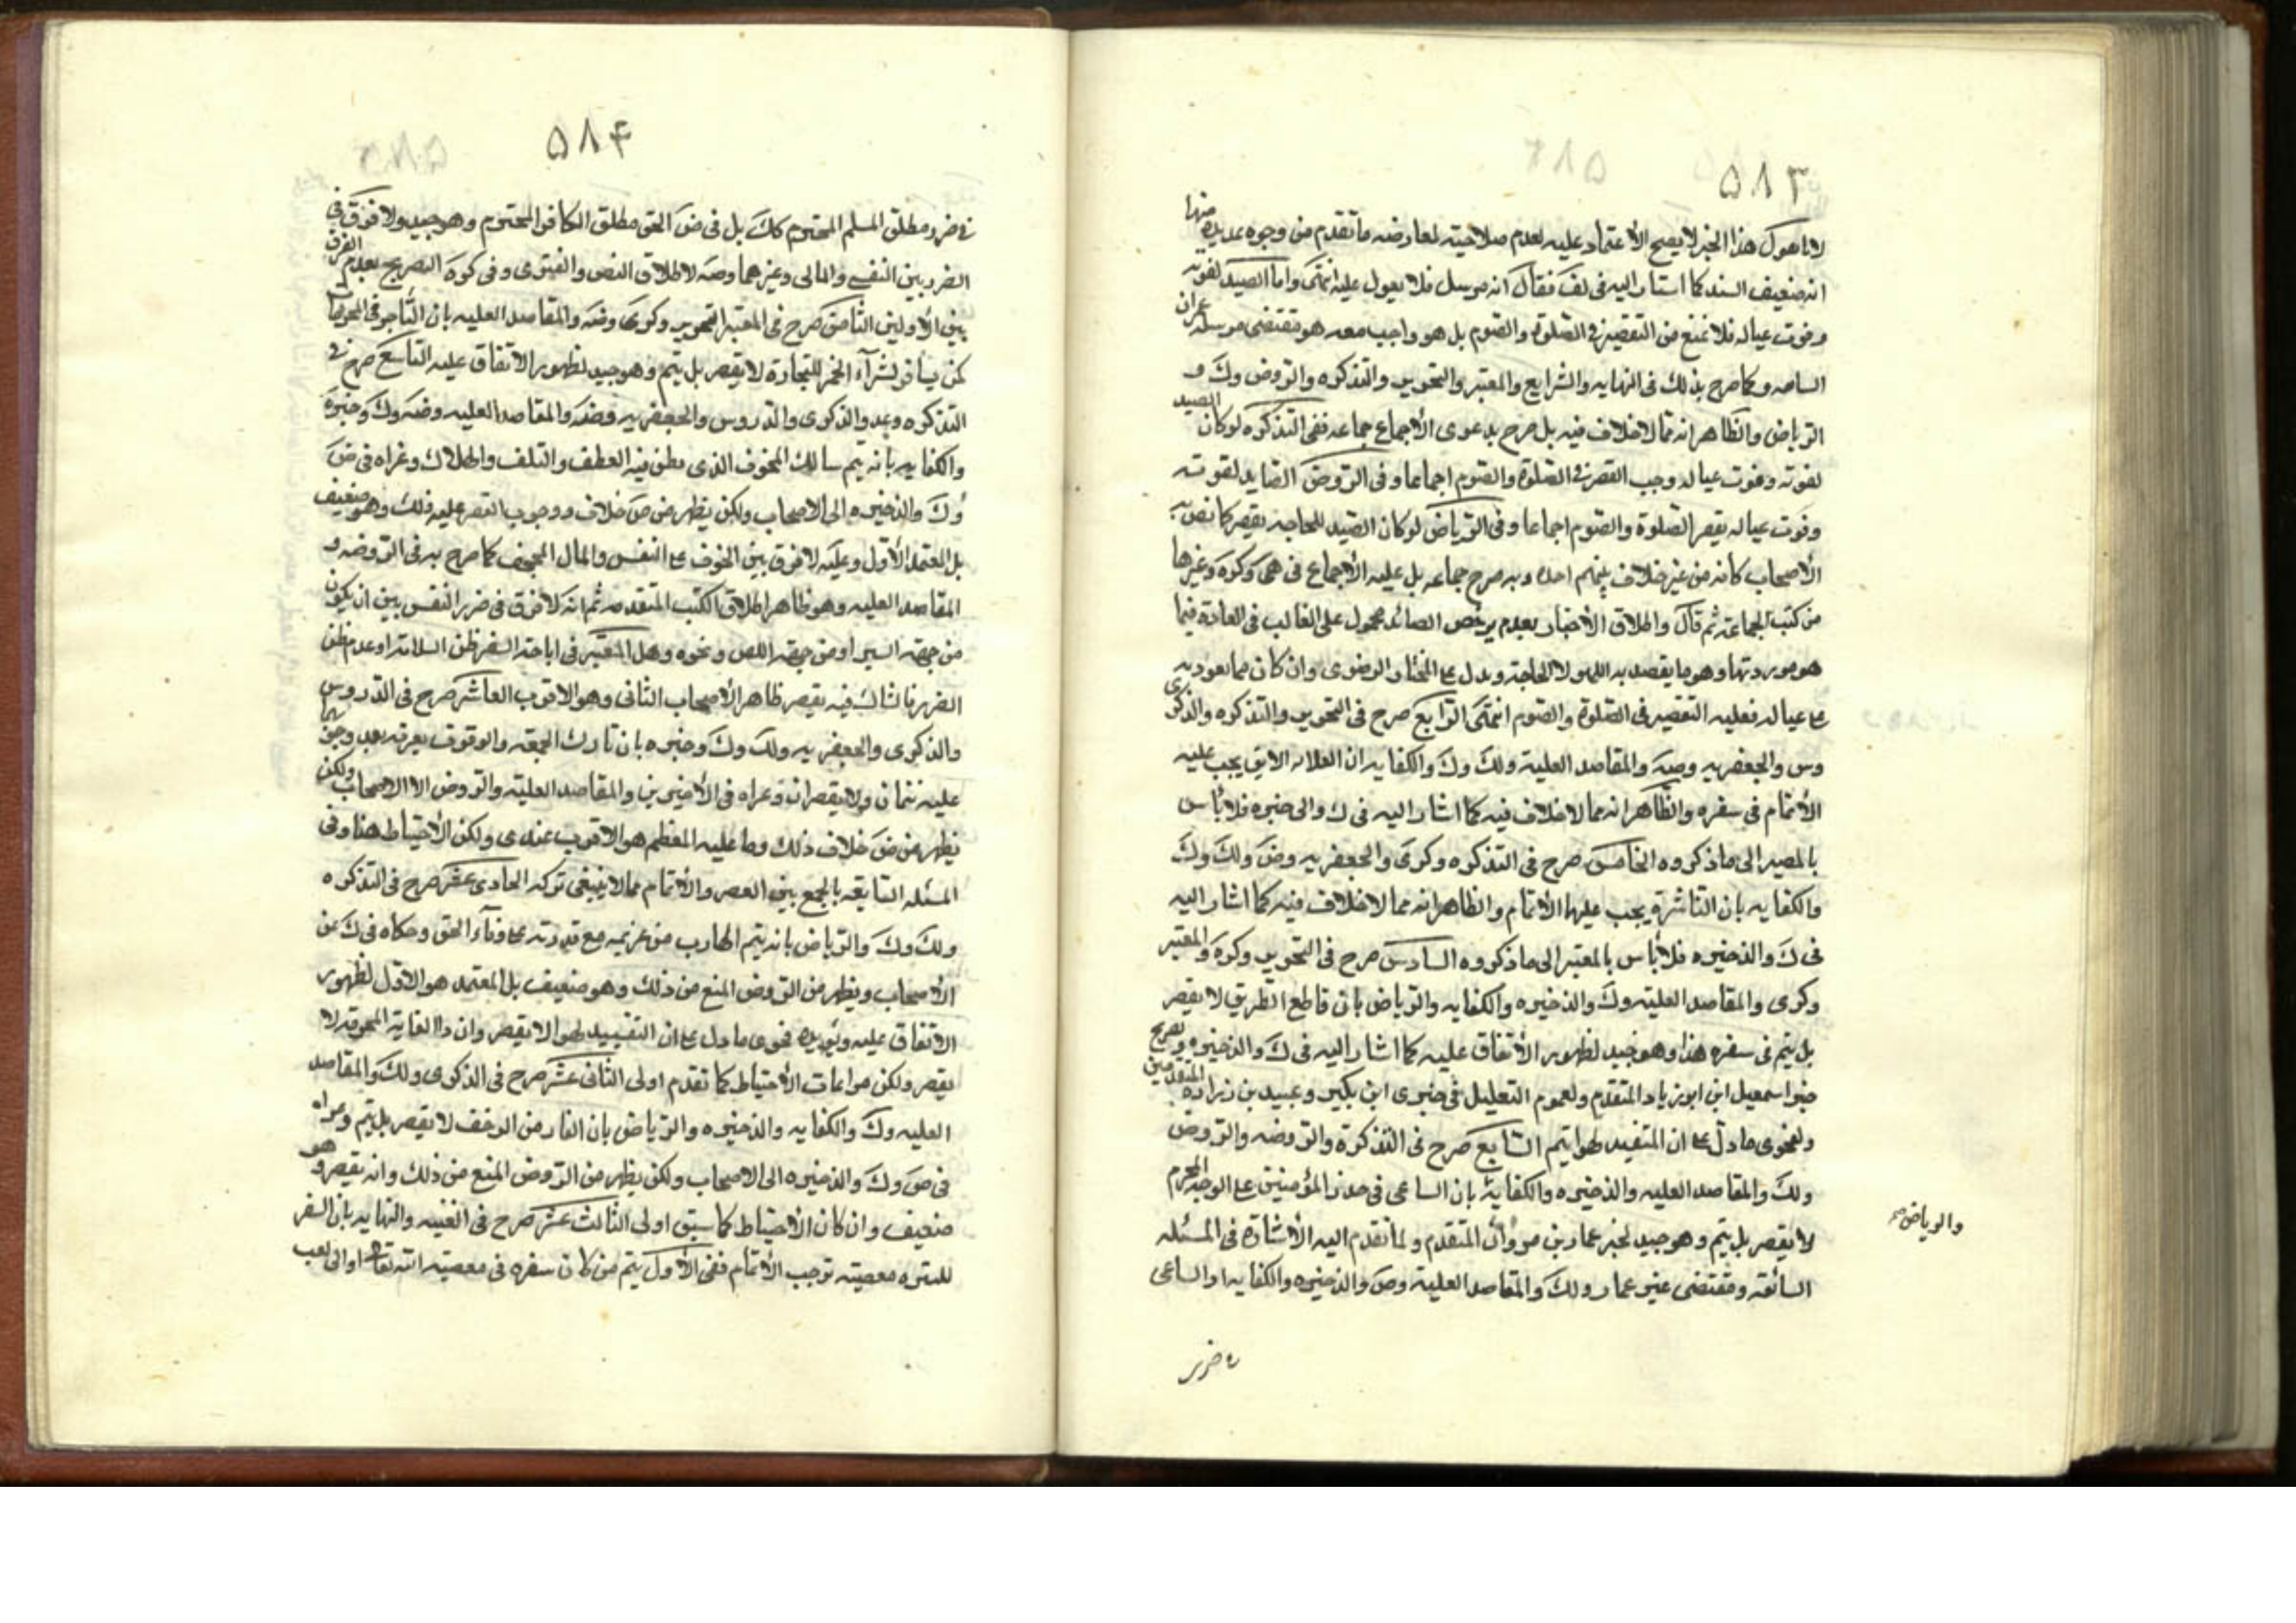 ٥٨٣
لانا هو ل هذا الخبر لا يصح الأعتماد عليه لعدم صلاحيته لمعارضه ما تقدم من وجوه عديده منها
انه ضعيف السند كما اشار اليه فى لف فقال انه مرسل فلا يعول عليه انتهى واما الصيد لقوته
وقوت عياله فلا يمنع من التقصير فى الصلوة والصوم بل هو واجب معه هو مقتضى مرسله عمران
وكما صرح بذلك فى النهايه والشرايع والمعتبر والتحرير والتذكره والروض وك و
الرياض والظاهر انه مما لاخلاف فيه بل صرح بدعوى الأجماع جماعه ففى التذكره لو كان الصيد
لقوته وقوت عياله وجب القصر فى الصلوة والصوم اجماعا وفى الروض الصايد لقوته
وقوت عياله يقصر الصلوة والصوم اجماعا وفى الرياض لو كان الصيد للحاجه يقصر كما نص به
الأصحاب كانه من غير خلاف بينهم اجده وبه صرح جماعه بل عليه الأجماع فى وكره وغيرها
من كتب الجماعة ثم قال واطلاق الأخبار بعدم ترخص الصائد محمول على الغالب فى العادة فيما
هو موردتها وهو ما يقصد به اللهو لا الحاجة ويدل على المختار الرضوى وان كان مما يعود به
على عياله فعليه التقصير فى الصلوة والصوم انتهى الرابع صرح فى التحرير والتذكره والذكرى
وس والجعفريه وضه والمقاصد العلية ولك وك والكفايه ان العلامه الابق يجب عليه
الأتمام فى سفره والظاهر انه مما لاخلاف فيه كما اشار اليه فى ك والذخيره فلا باس
بالمصير الى ما ذكروه الخامس صرح فى التذكره وكرى والجعفريه وض ولك وك
والكفايه بان الناشزة يجب عليها الأتمام والظاهر انه مما لاخلاف فيه كما اشار اليه
فى ك والذخيره فلا باس بالمصير الى ما ذكروه السادس صرح فى التحرير وكره والمعتبر
وكرى والمقاصد العليه وك والذخيره والكفايه والرياض بان قاطع الطريق لا يقصر
بل يتم فى سفره هذا وهو جيد لظهور الأتفاق عليه كما اشار اليه فى ك والذخيره وتصريح
خبر اسمعيل ابن ابو زياد المتقدم ولعموم التعليل فى خبرى ابن بكير وعبيد بن زراره المتقدمين
ولفحوى ما دل على ان المتصيد لهوا يتم السابع صرح فى التذكرة والروضه والروض
ولك والمقاصد العليه والذخيره والكفاية بان الساعى فى ضرر المؤمنين على الوجه المحرم
لا يقصر بل يتم وهو جيد لخبر عمار بن مروان المتقدم ولما تقدم اليه الأشارة فى المسئله
السابقه ومقتضى خبر عمار ولك والمقاصد العليه وض والذخيره والكفايه او الساعى
والرياض صح
ه ضرر
٥٨٤
فى ضرر مطلق المسلم المحترم كك بل فى ض الحق مطلق الكافر المحترم وهو جيد ولا فرق فى
الضرر بين النفسى والمالى وغيرهما وضه لاطلاق النص والفتوى وفى كره التصريح بعدم الفرق
بين الأولين الثامن صرح فى المعتبر والتحرير وكرى وضه والمقاصد العليه بان التاجر فى المحرمات
كمن يسافر لشراء الخمر للتجارة لا يقصر بل يتم وهو جيد لظهور الاتفاق عليه التاسع صرح فى
التذكره وعد والذكرى والدروس والجعفريه وضه والمقاصد العليه وضه وك وخيره
والكفايه بانه يتم سالك المخوف الذى يظن فيه العطب والتلف والهلاك وعزاه فى ض
وك والذخيره الى الاصحاب ولكن يظهر من ض خلاف ووجوب القصر عليه ذلك وهو ضعيف
بل المعتمد الأول وعليه لا فرق بين الخوف على النفس والمال المجحف كما صرح به فى الروضه و
المقاصد العليه وهو ظاهر اطلاق الكتب المتقدمه ثم انه لا فرق فى ضرر النفس بين ان يكون
من جهة السير او من جهة اللص ونحوه وهل المعتبر فى اباحة السفر ظن السلامة او عدم ظن
الضرر فالشاك فيه يقصر ظاهر الأصحاب الثانى وهو الاقرب العاشر صرح فى الدروس
والذكرى والجعفريه ولك وك وخيره بان تارك الجمعه والوقوف بعرفه بعد وجوبهما
عليه يتمان ولا يقصران وعزاه فى الأخيرين والمقاصد العليه والروض الى الاصحاب ولكن
يظهر من ض خلاف ذلك وما عليه المعظم هو الاقرب عندى ولكن الأحتياط هنا وفى
المسئله السابقه بالجمع بين القصر والأتمام مما لا ينبغى تركه الحادى عشر صرح فى التذكره
ولك وك والرياض بانه يتم الهارب من غريمه مع قدرته على وفاء الحق وحكاه فى ك عن
الأصحاب ويظهر من الروض المنع من ذلك وهو ضعيف بل المعتمد هو الاول لظهور
الاتفاق عليه ويؤيده فحوى ما دل على ان التصيد لهوا لا يقصر وان ذا الغاية المحرمه لا
يقصر ولكن مراعات الأحتياط كما تقدم اولى الثانى عشر صرح فى الذكرى ولك والمقاصد
العليه وك والكفايه والذخيره والرياض بان الفار من الزحف لا يقصر بل يتم وعزاه
فى ض وك والذخيره الى الاصحاب ولكن يظهر من الروض المنع من ذلك وانه يقصر وهو
ضعيف وان كان الأحتياط كما سبق اولى الثالث عشر صرح فى الغنيه والنهايه بان السفر
للنزه معصيته توجب الأتمام ففى الأول يتم من كان سفره فى معصية الله تعالى او الى لعب